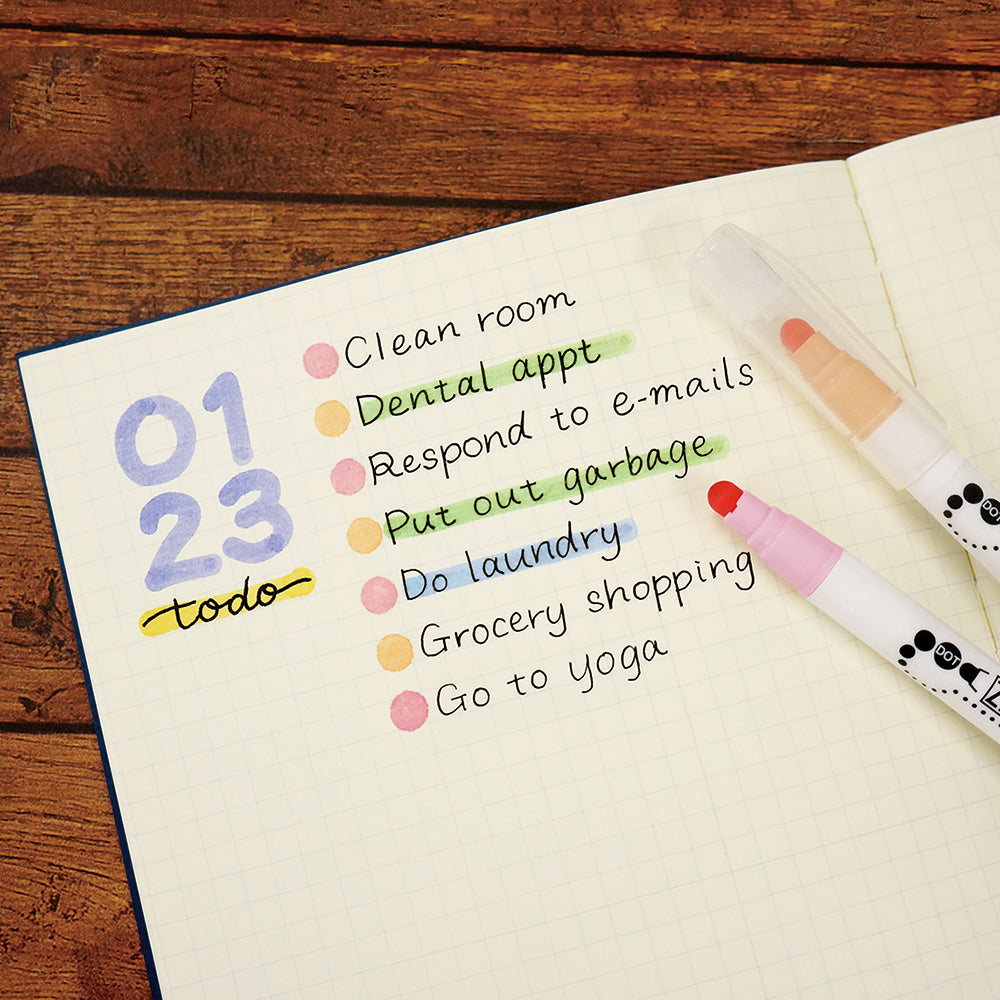 01
23
todo
Clean room
Dental appt
Respond to e-mails
Put out garbage
Do laundry
Grocery shopping
Go to yoga
DOT
DOT